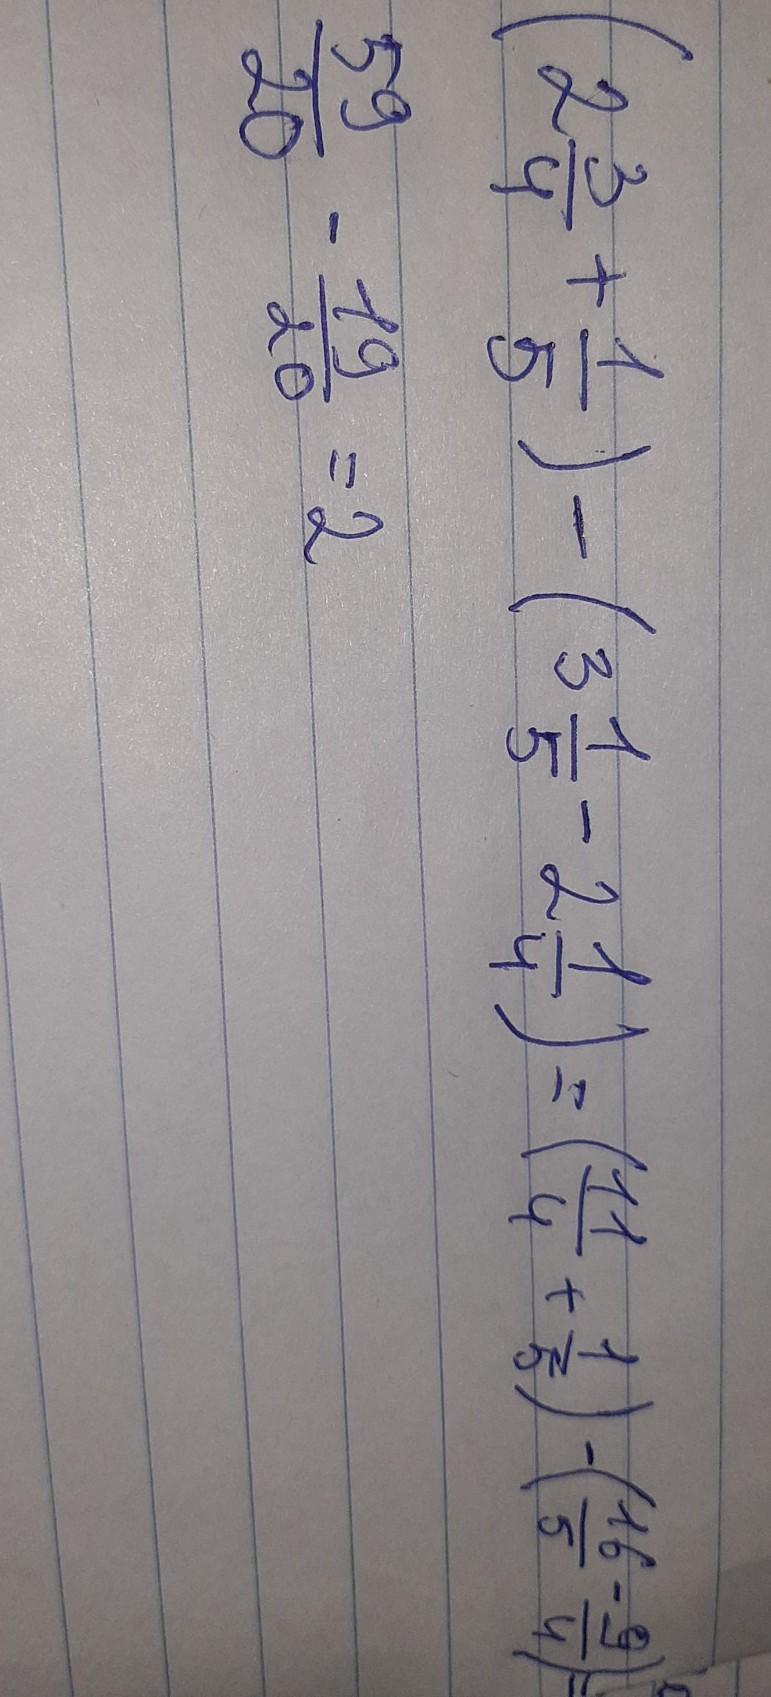 (2 3/4 + 1/5) - (3 1/5 - 2 1/4) = (11/4 + 1/5) - (16/5 - 9/4) =
59/20 - 19/20 = 2